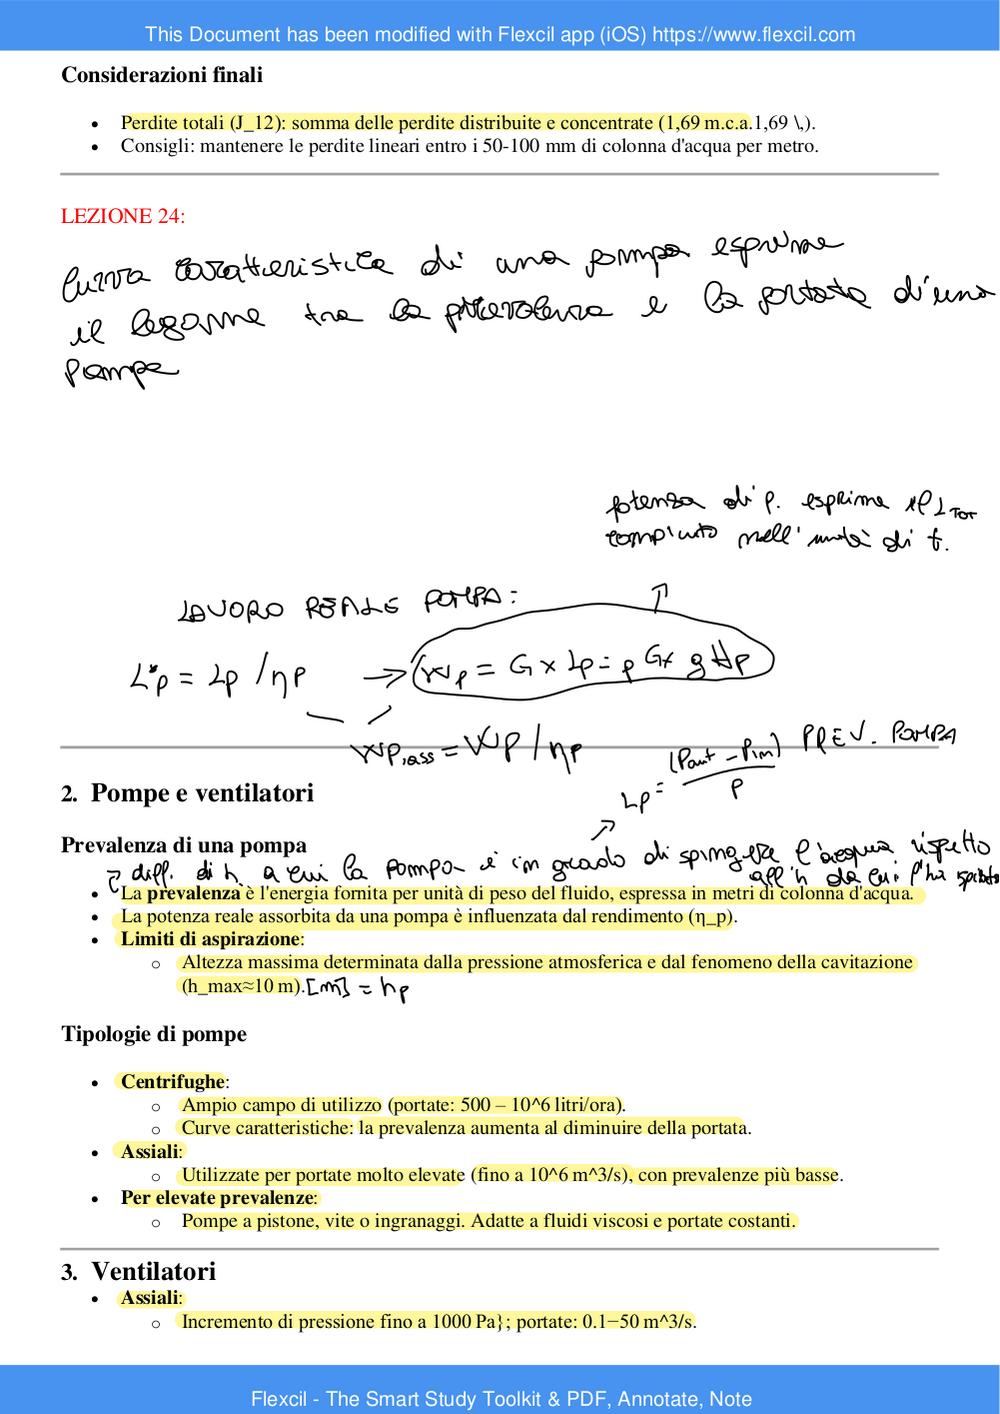 This Document has been modified with Flexcil app (iOS) https://www.flexcil.com
Considerazioni finali
• Perdite totali (J_12): somma delle perdite distribuite e concentrate (1,69 m.c.a.1,69 \,).
• Consigli: mantenere le perdite lineari entro i 50-100 mm di colonna d'acqua per metro.
LEZIONE 24:
Curva caratteristica di una pompa esprime
il legame tra la prevalenza e la portata d'una
pompa
potenza di p. esprime il L Tot
compiuto nell'unità di t.
LAVORO REALE POMPA:
L*p = Lp / ηp → Wp = G x Lp = ρ Gx g Hp
Wp,ass = Wp / ηp
Lp = (Pout - Pin) / ρ PREV. POMPA
2. Pompe e ventilatori
Prevalenza di una pompa
diff. di h a cui la pompa è in grado di spingere l'acqua rispetto
all'h da cui l'ha
• La prevalenza è l'energia fornita per unità di peso del fluido, espressa in metri di colonna d'acqua.
• La potenza reale assorbita da una pompa è influenzata dal rendimento (η_p).
• Limiti di aspirazione:
o Altezza massima determinata dalla pressione atmosferica e dal fenomeno della cavitazione
(h_max≈10 m). [m] = hp
Tipologie di pompe
• Centrifughe:
o Ampio campo di utilizzo (portate: 500 – 10^6 litri/ora).
o Curve caratteristiche: la prevalenza aumenta al diminuire della portata.
• Assiali:
o Utilizzate per portate molto elevate (fino a 10^6 m^3/s), con prevalenze più basse.
• Per elevate prevalenze:
o Pompe a pistone, vite o ingranaggi. Adatte a fluidi viscosi e portate costanti.
3. Ventilatori
• Assiali:
o Incremento di pressione fino a 1000 Pa}; portate: 0.1−50 m^3/s.
Flexcil - The Smart Study Toolkit & PDF, Annotate, Note